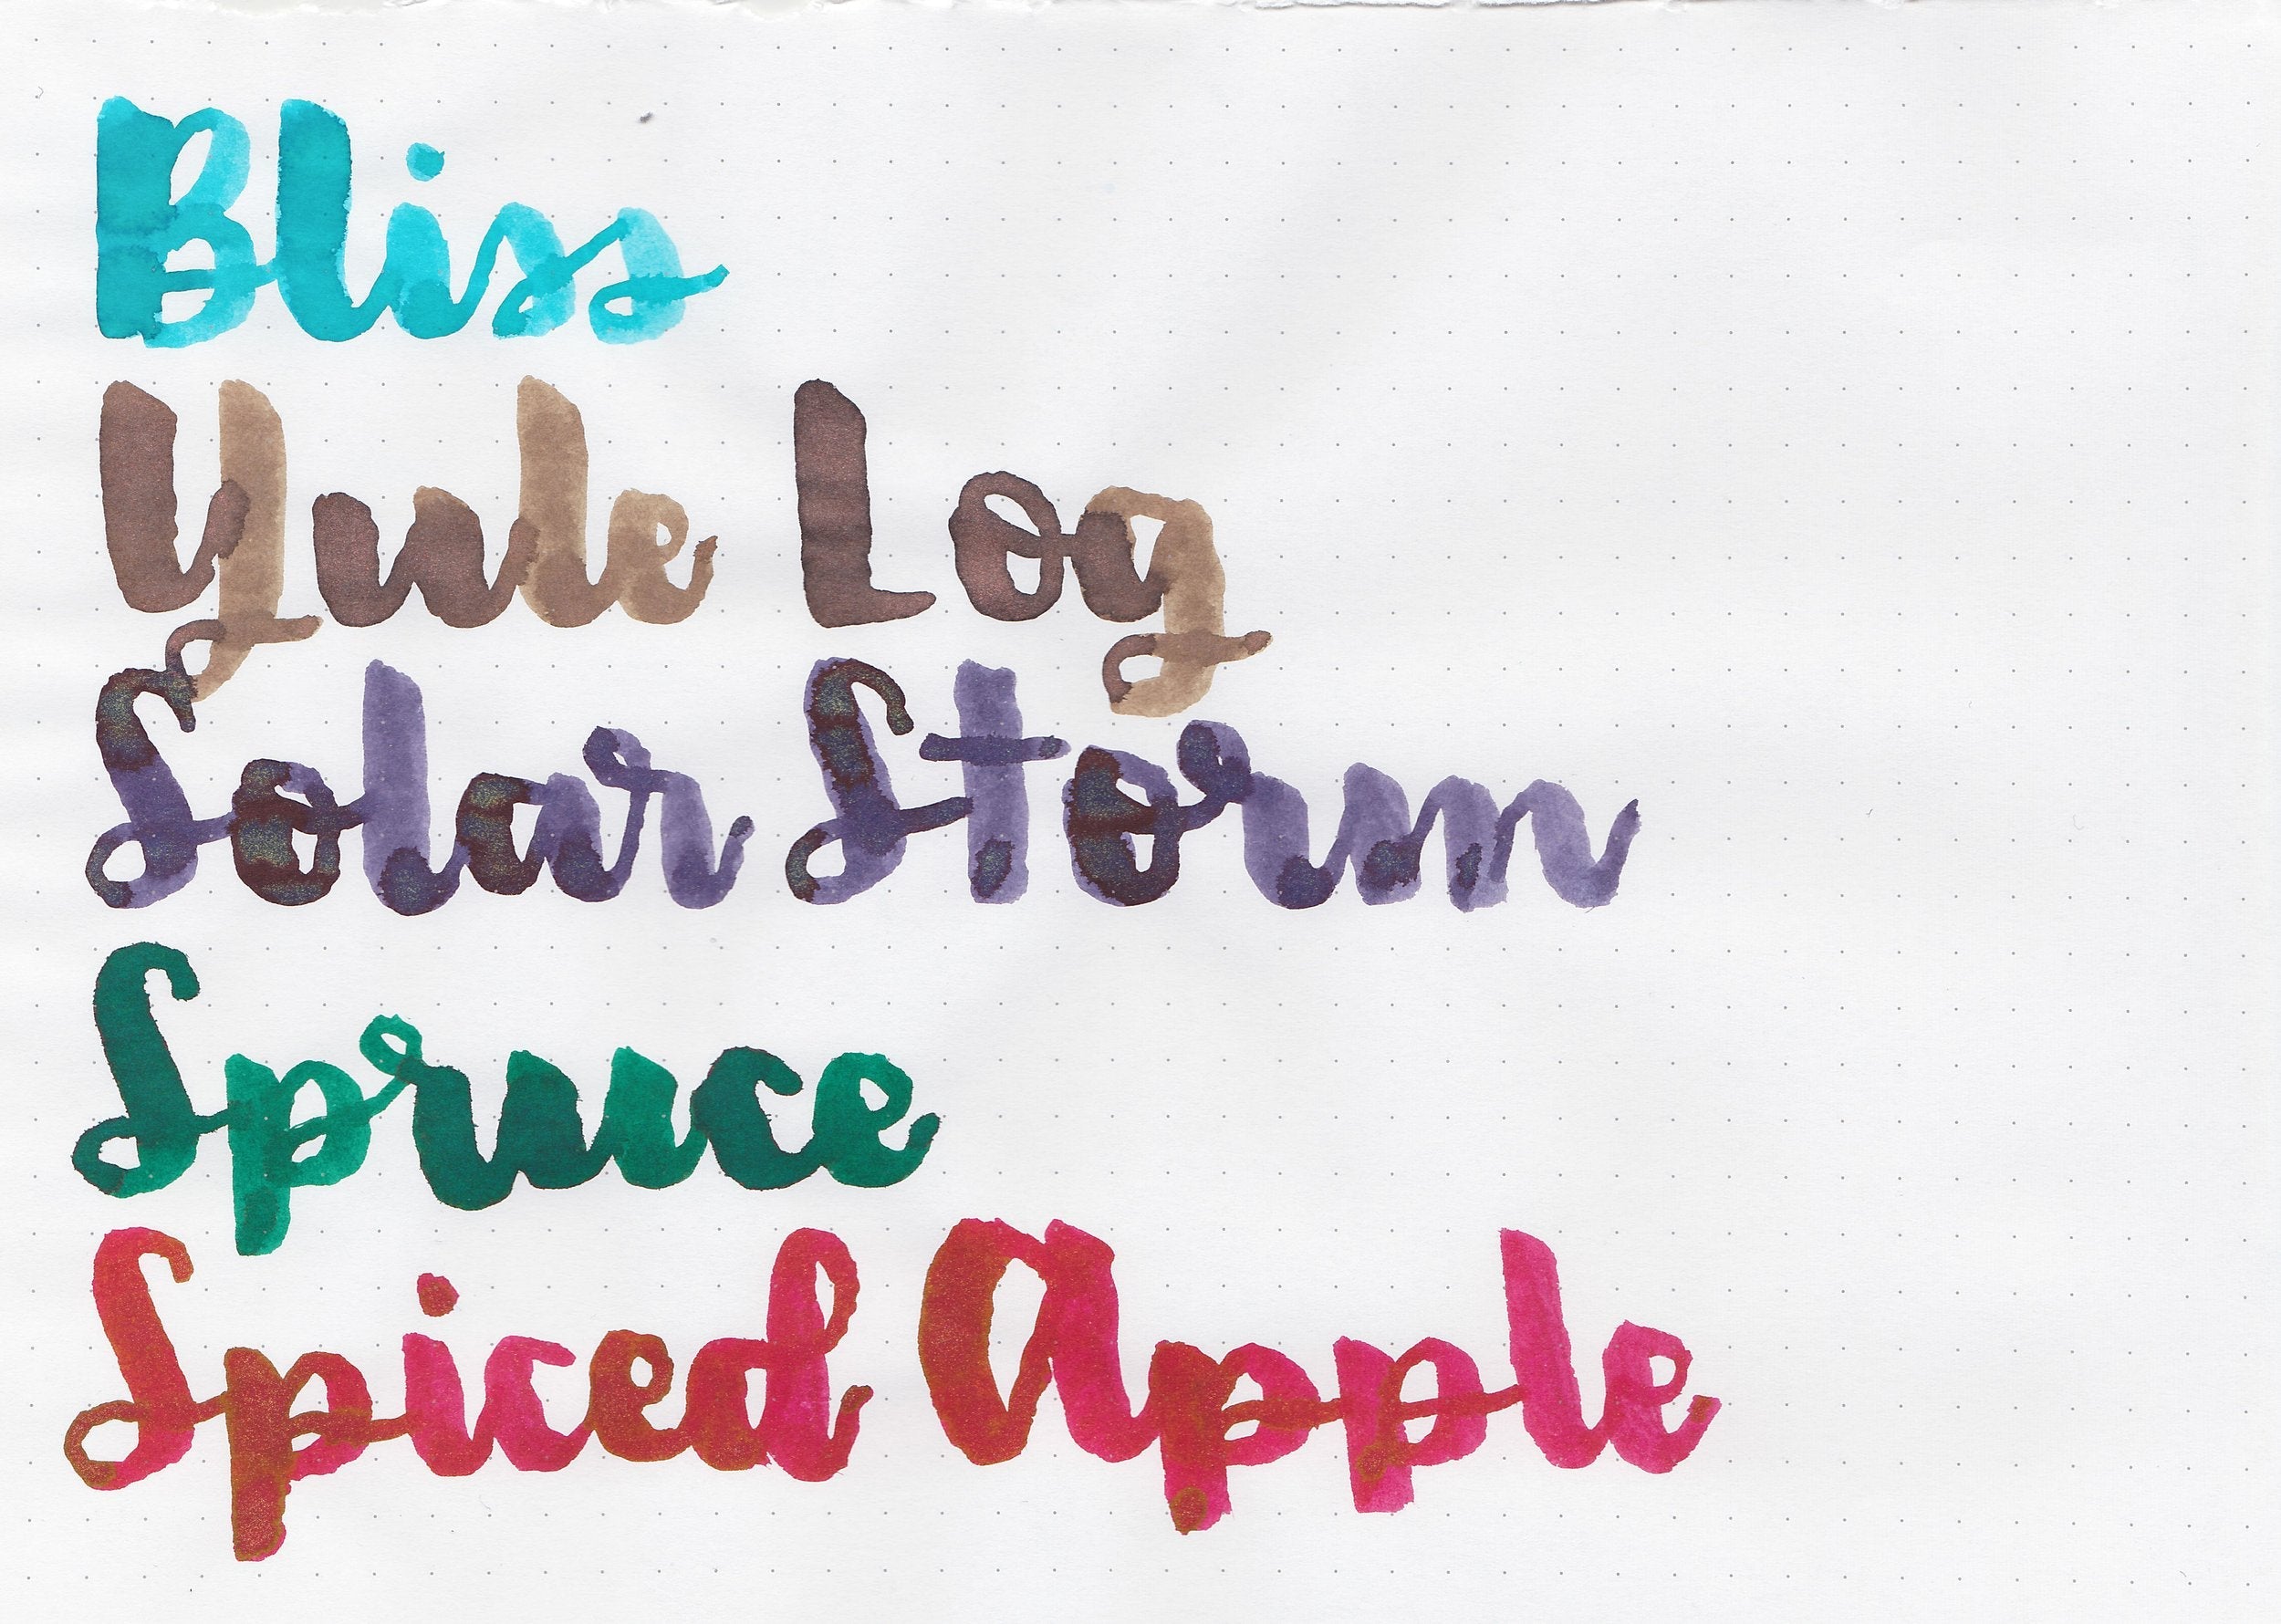 Bliss
Yule Log
Solar Storm
Spruce
Spiced Apple